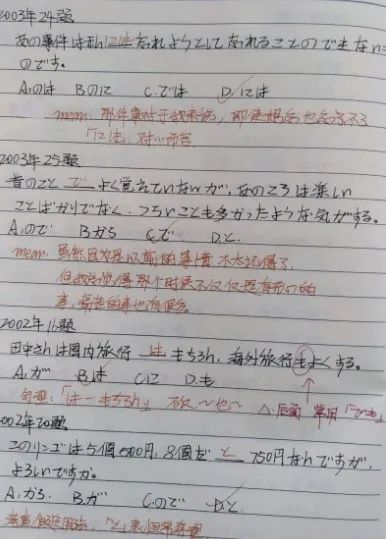 2003年24題
あの事件は私には忘れようとして忘れることのできない
のです。
A.のは B.のに C.では D.には
mem: 那件事对于我来说, 即使想忘也忘不了
「には」对～而言
2003年25題
昔のこと で よく覚えていないが、あのころは楽しい
ことばかりでなく、つらいことも多かったような気がする。
A.ので B.から C.で D.と
mem: 虽然因为是以前的事情 不太记得了,
但我总觉得那个时候不仅仅是有开心的
事, 痛苦的事也有很多
2002年16題
田中さんは国内旅行 は もちろん, 海外旅行もよくする。
A.が B.は C.に D.も
句型:「は～もちろん」 不仅～也～ △.后面 常用「でも」
2002年20題
このリンゴは5個500円, 8個だ と 750円なんですが,
よろしいですか。
A.から B.が C.ので D.と
「と」表恒常